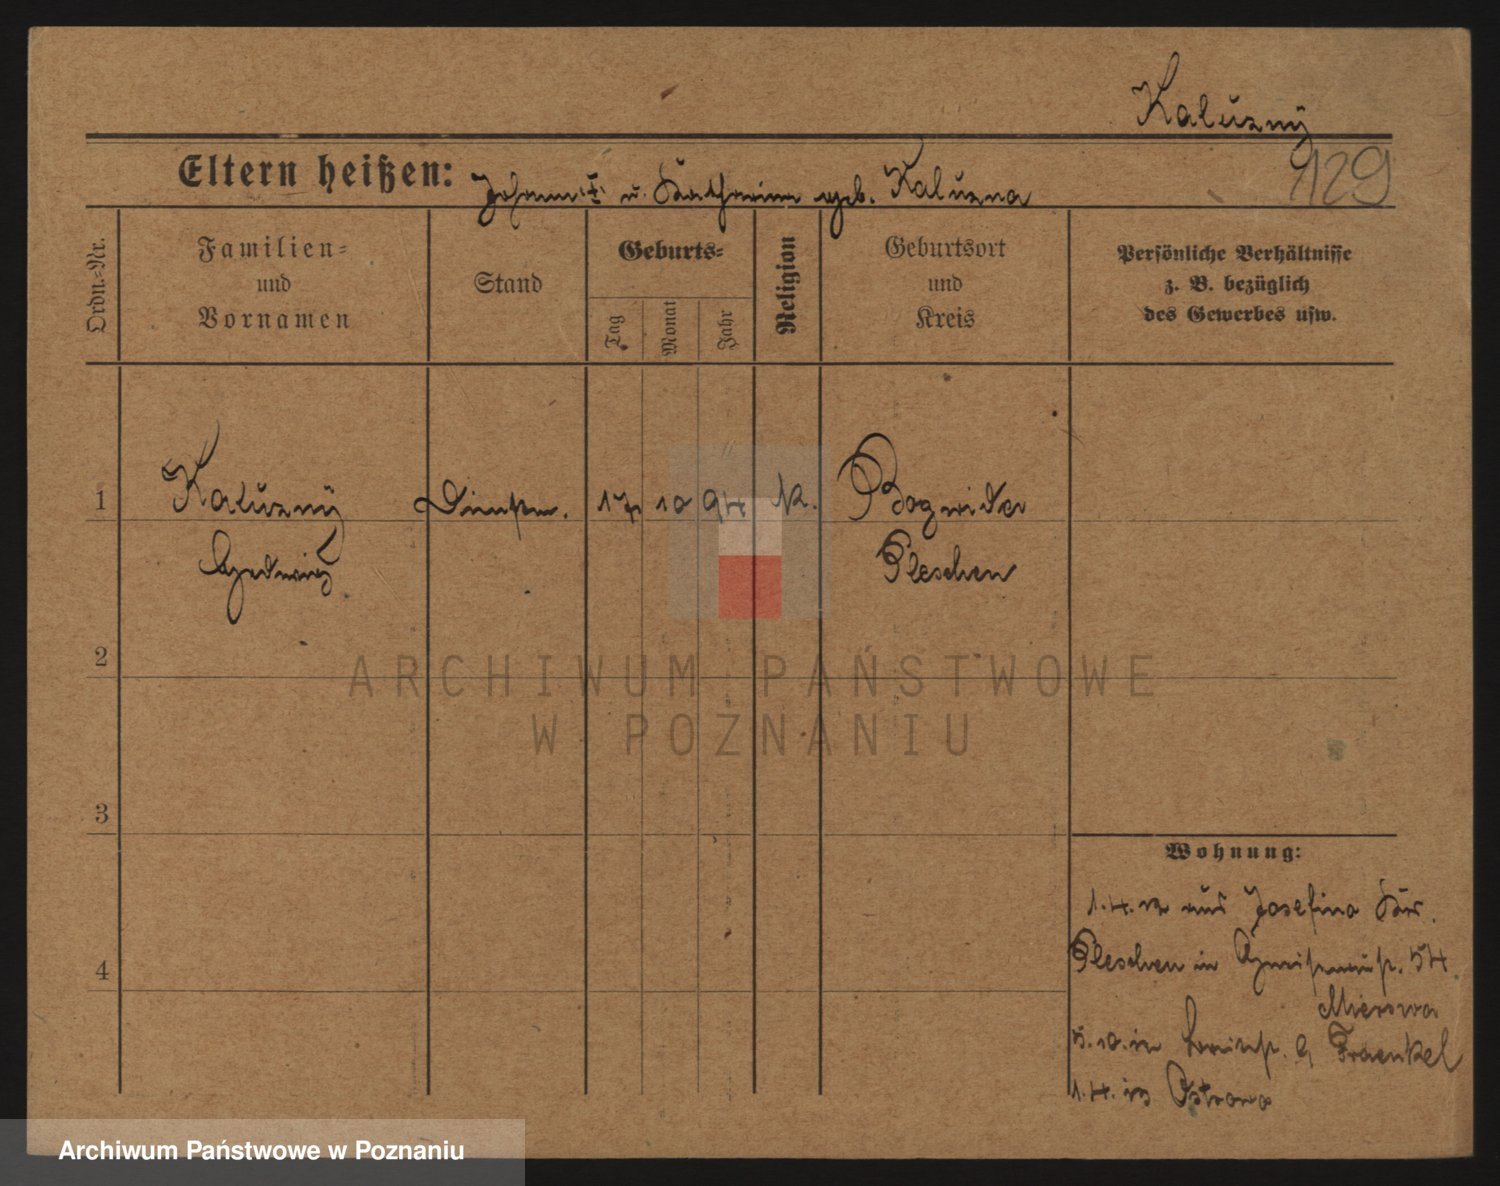 Kalużny
129
Eltern heißen: Johann † u. Katharina geb. Kaluzna
Ordn.-Nr.
Familien-
und
Vornamen
Stand
Geburts-
Tag
Monat
Jahr
Religion
Geburtsort
und
Kreis
Persönliche Verhältnisse
z. B. bezüglich
des Gewerbes usw.
1 Kalużny Dienstm. 17 10 94 K. Bogwidze
Hedwig Pleschen
2
3
4
Wohnung:
1.4.12 aus Josefina Kr.
Pleschen in 54
5.10.12 9 Fraenkel
1.4.13 Ostrowo
ARCHIWUM PAŃSTWOWE
W POZNANIU
Archiwum Państwowe w Poznaniu